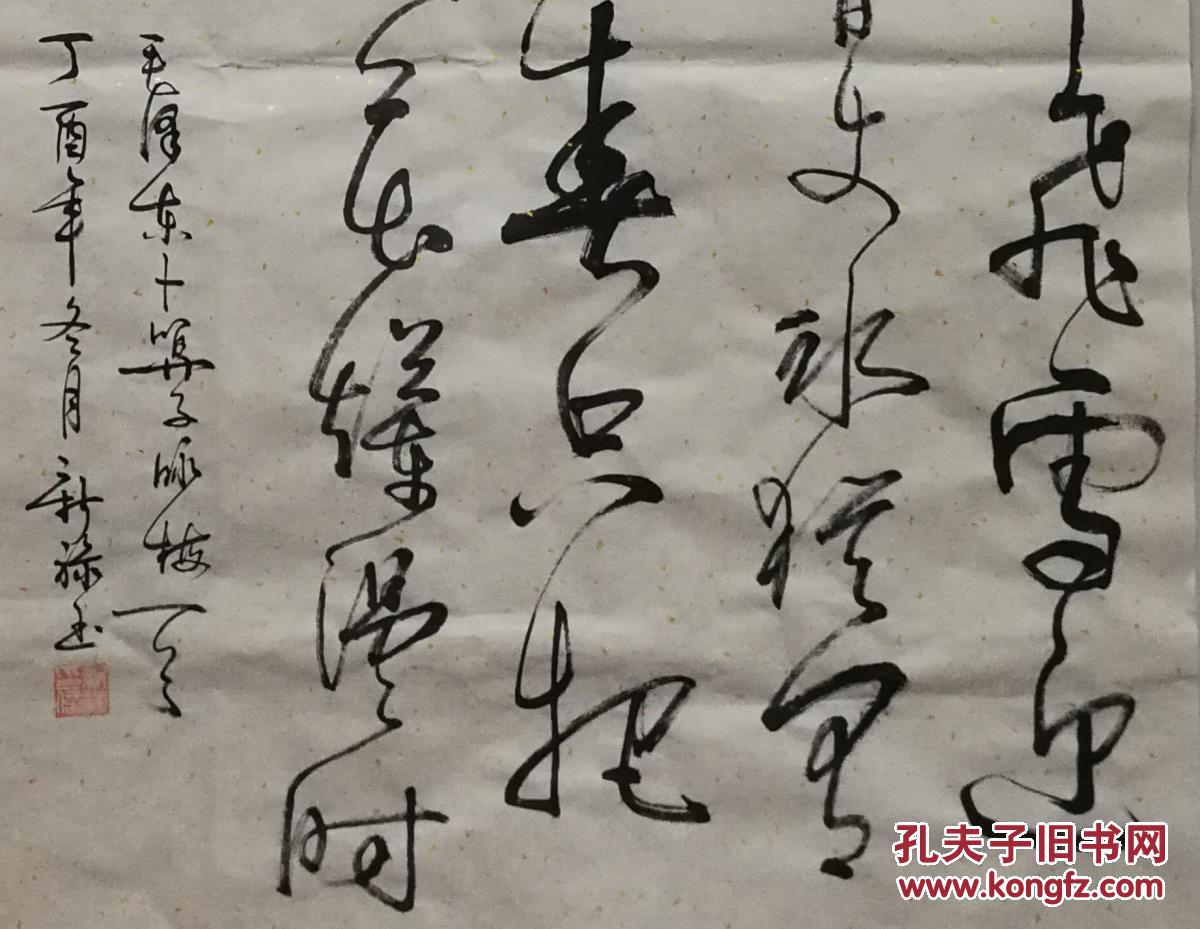 飞雪迎
丈冰犹有
春只把
花烂漫时
毛泽东卜算子咏梅一首
丁酉年冬月新禄书
孔夫子旧书网
www.kongfz.com